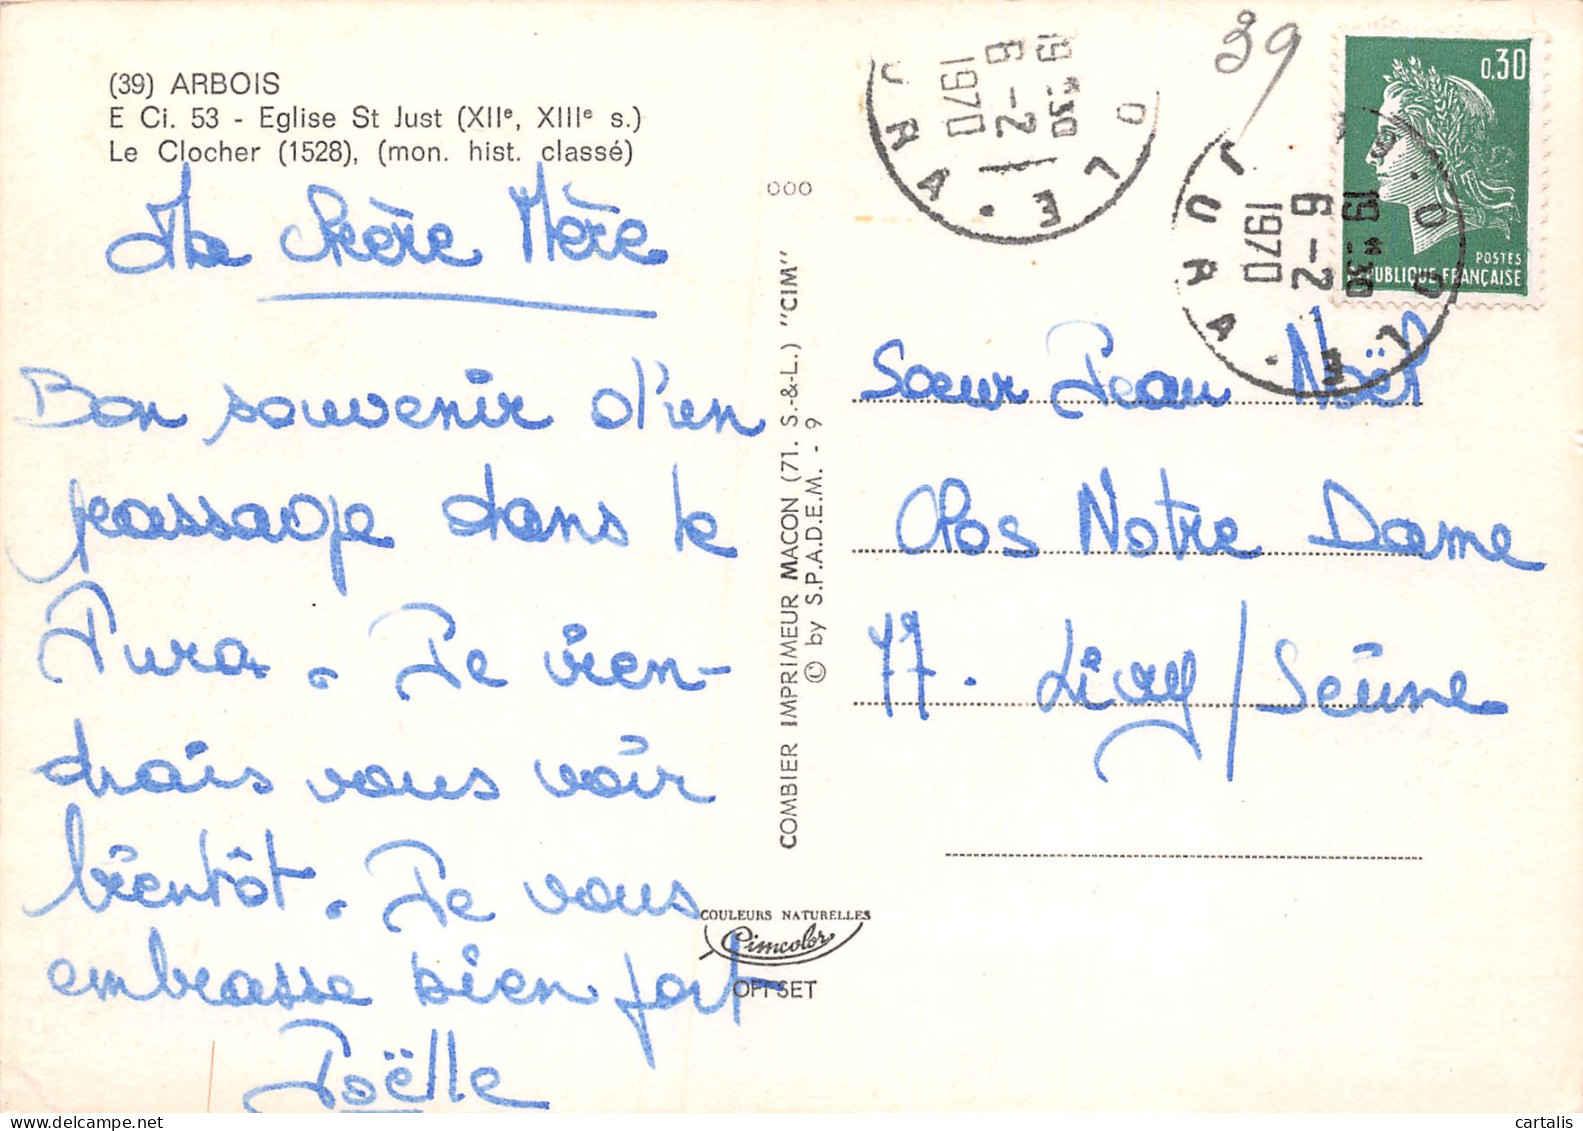 (39) ARBOIS
E Ci. 53 - Eglise St Just (XIIᵉ, XIIIᵉ s.)
Le Clocher (1528), (mon. hist. classé)
Ma Chère Mère
Bon souvenir d'un
passage dans le
Jura. Je vien-
drais vous voir
bientôt. Je vous
embrasse bien fort
Joëlle
000
COMBIER IMPRIMEUR MACON (71. S.-&-L.) "CIM"
© by S.P.A.D.E.M. - 9
COULEURS NATURELLES
Cimcolor
OFFSET
DOLE · JURA
19 H 30
6-2
1970
39
0,30
POSTES
REPUBLIQUE FRANÇAISE
DOLE · JURA
19 H 30
6-2
1970
Sœur Jean Noël
Clos Notre Dame
77. Livry/Seine
cartalis